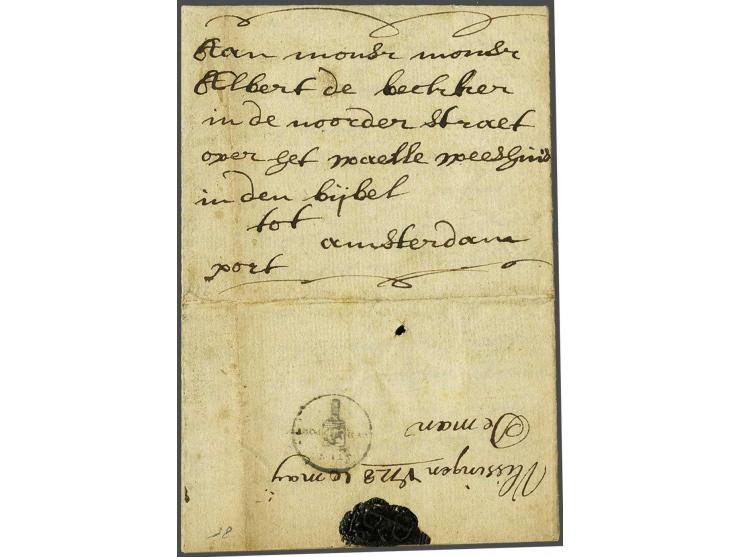 Aan monsr monsr
Albert de beckker
in de noorder straet
over het waelse weeshuis
in den bijbel
tot
amsterdam
port
Vlissingen 1723 10 may
De man